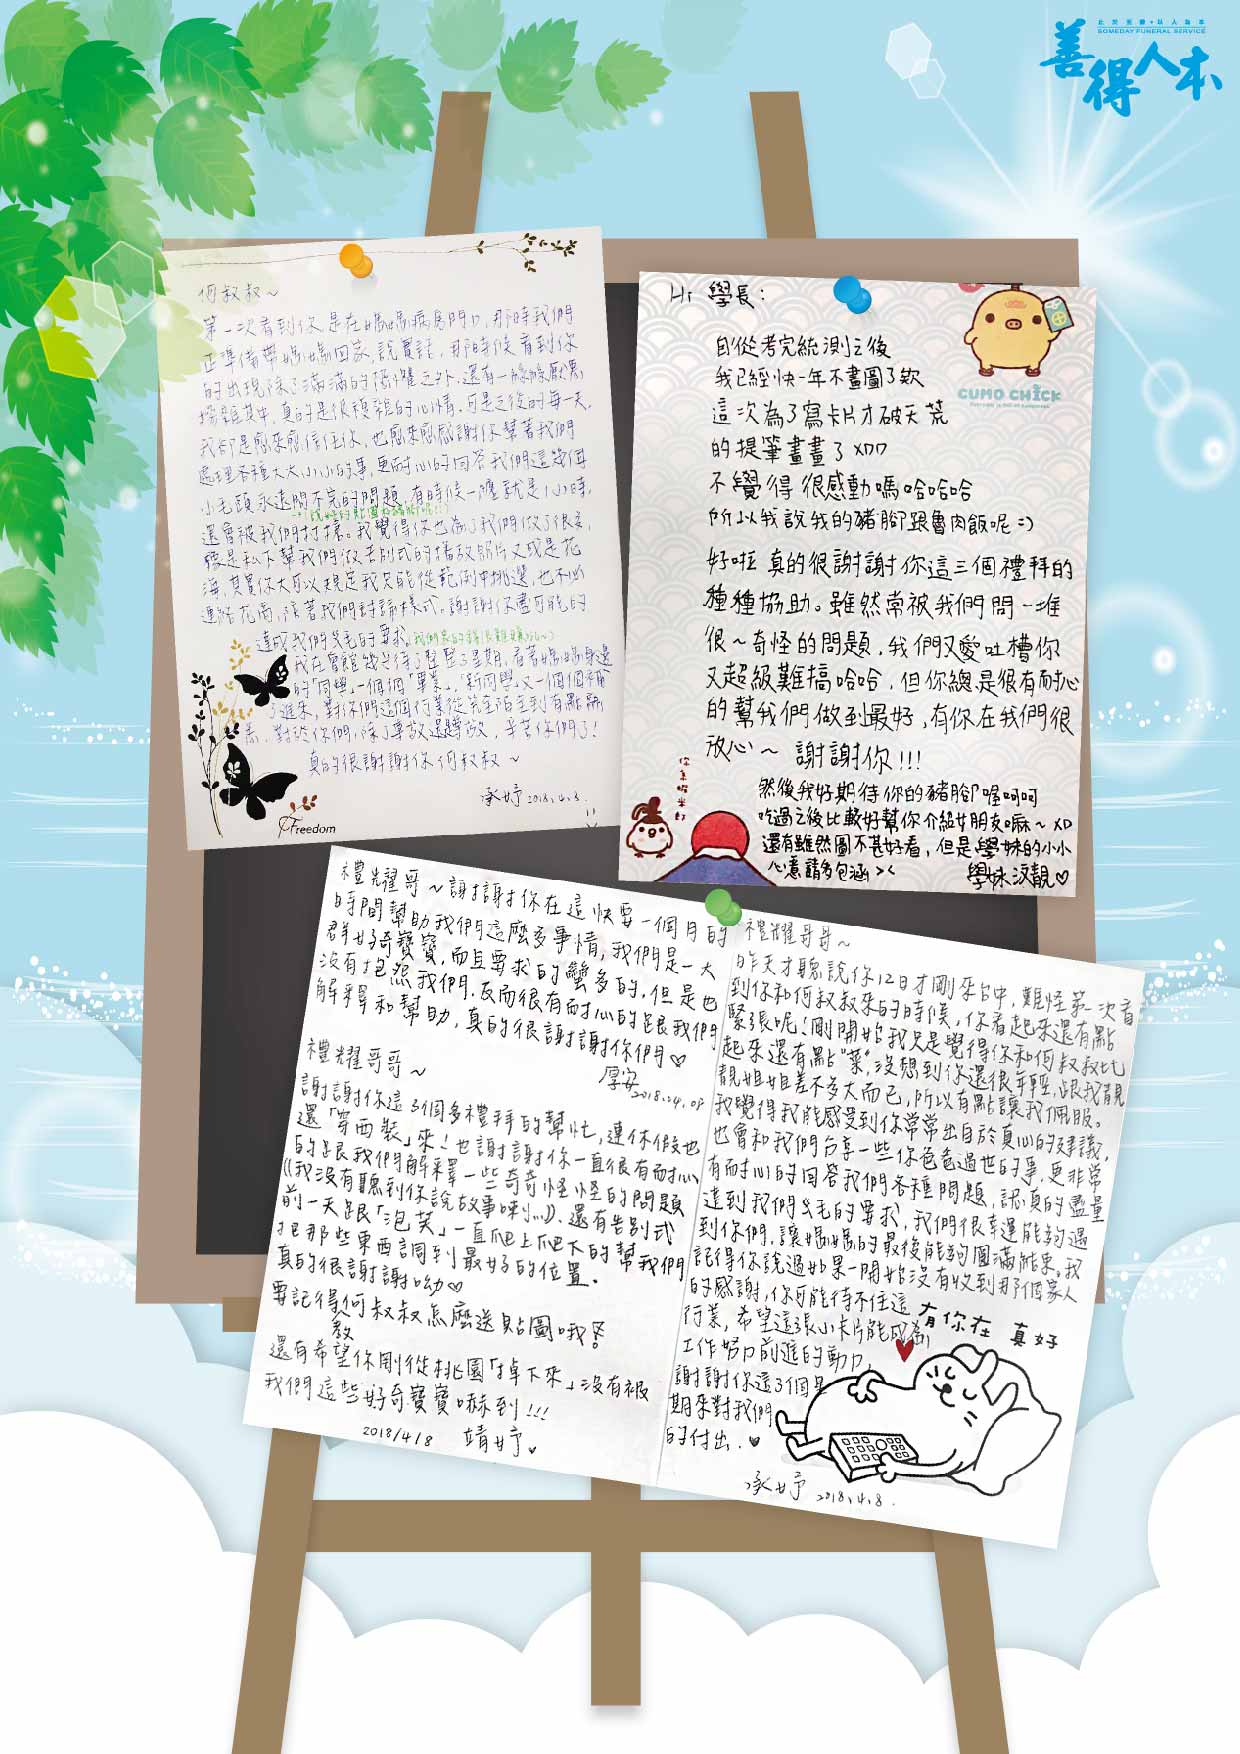 此居至善•以人為本
SOMEDAY FUNERAL SERVICE
善得人本
何叔叔~
第一次看到你是在媽媽病房門口,那時我們
正準備帶媽媽回家,說實話,那時候看到你
的出現除了滿滿的恐懼之外,還有一絲絲厭惡
摻雜其中,真的是很複雜的心情,可是之後的每一天,
我卻是愈來愈信任你,也愈來愈感謝你幫著我們
處理各種大大小小的事,更耐心的回答我們這幾個
小毛頭永遠問不完的問題,有時候一聽就是1小時,
還會被我們打擾。我覺得你也為了我們做了很多,
像是私下幫我們做告別式的播放照片又或是花
海,其實你大可以規定我只能從範例中挑選,也不必
連絡花商,陪著我們討論樣式。謝謝你盡可能的
達成我們ㄠ毛的要求,
我在會館幾乎待了整整3星期,看著媽媽身邊
的「同學」一個個「畢業」,「新同學」又一個個補
了進來,對你們這個行業從完全陌生到有點熟
悉,對於你們,除了尊敬還是尊敬,辛苦你們了!
真的很謝謝你何叔叔~
承妤 2018.4.8.
Freedom
Hi 學長:
自從考完統測之後
我已經快一年不畫圖了欸
這次為了寫卡片才破天荒
的提筆畫畫了XDD
不覺得很感動嗎哈哈哈
所以我說我的豬腳跟魯肉飯呢=)
好啦 真的很謝謝你這三個禮拜的
種種協助。雖然常被我們問一堆
很~奇怪的問題,我們又愛吐槽你
又超級難搞哈哈,但你總是很有耐心
的幫我們做到最好,有你在我們很
放心~ 謝謝你!!!
然後我好期待你的豬腳喔呵呵
吃過之後比較好幫你介紹女朋友嘛~XD
還有雖然圖不甚好看,但是學妹的小小
心意請多包涵><
學妹汶靚♡
CUMO CHICK
禮耀哥~謝謝你在這快要一個月的
時間幫助我們這麼多事情,我們是一大
群好奇寶寶,而且要求的蠻多的,但是也
沒有抱怨我們,反而很有耐心的跟我們
解釋和幫助,真的很謝謝你們♡
厚安
2018.04.08
禮耀哥哥~
謝謝你這3個多禮拜的幫忙,連休假也
還「穿西裝」來!也謝謝你一直很有耐心
的跟我們解釋一些奇奇怪怪的問題
((我沒有聽到你說故事啦!!!)),還有告別式
前一天跟「泡芙」一直爬上爬下的幫我們
把那些東西調到最好的位置,
真的很謝謝呦♡
要記得教何叔叔怎麼送貼圖哦!
還有希望你剛從桃園「掉下來」沒有被
我們這些好奇寶寶嚇到!!!
2018/4/8 靖妤
禮耀哥哥~
昨天才聽說你12日才剛來台中,難怪第一次看
到你和何叔叔來的時候,你看起來還有點
緊張呢!剛開始我只是覺得你和何叔叔比
起來還有點"菜",沒想到你還很年輕,跟我靚
靚姐姐差不多大而已,所以有點讓我佩服。
我覺得我能感受到你常常出自於真心的建議,
也會和我們分享一些你爸爸過世的事,更非常
有耐心的回答我們各種問題,認真的盡量
達到我們ㄠ毛的要求,我們很幸運能夠遇
到你們,讓媽媽的最後能夠圓滿結束。我
記得你說過如果一開始沒有收到那個家人
的感謝,你可能待不住這
行業,希望這張小卡片能成為
工作努力前進的動力,
謝謝你這3個星
期來對我們
的付出.♥
承妤 2018.4.8.
有你在 真好